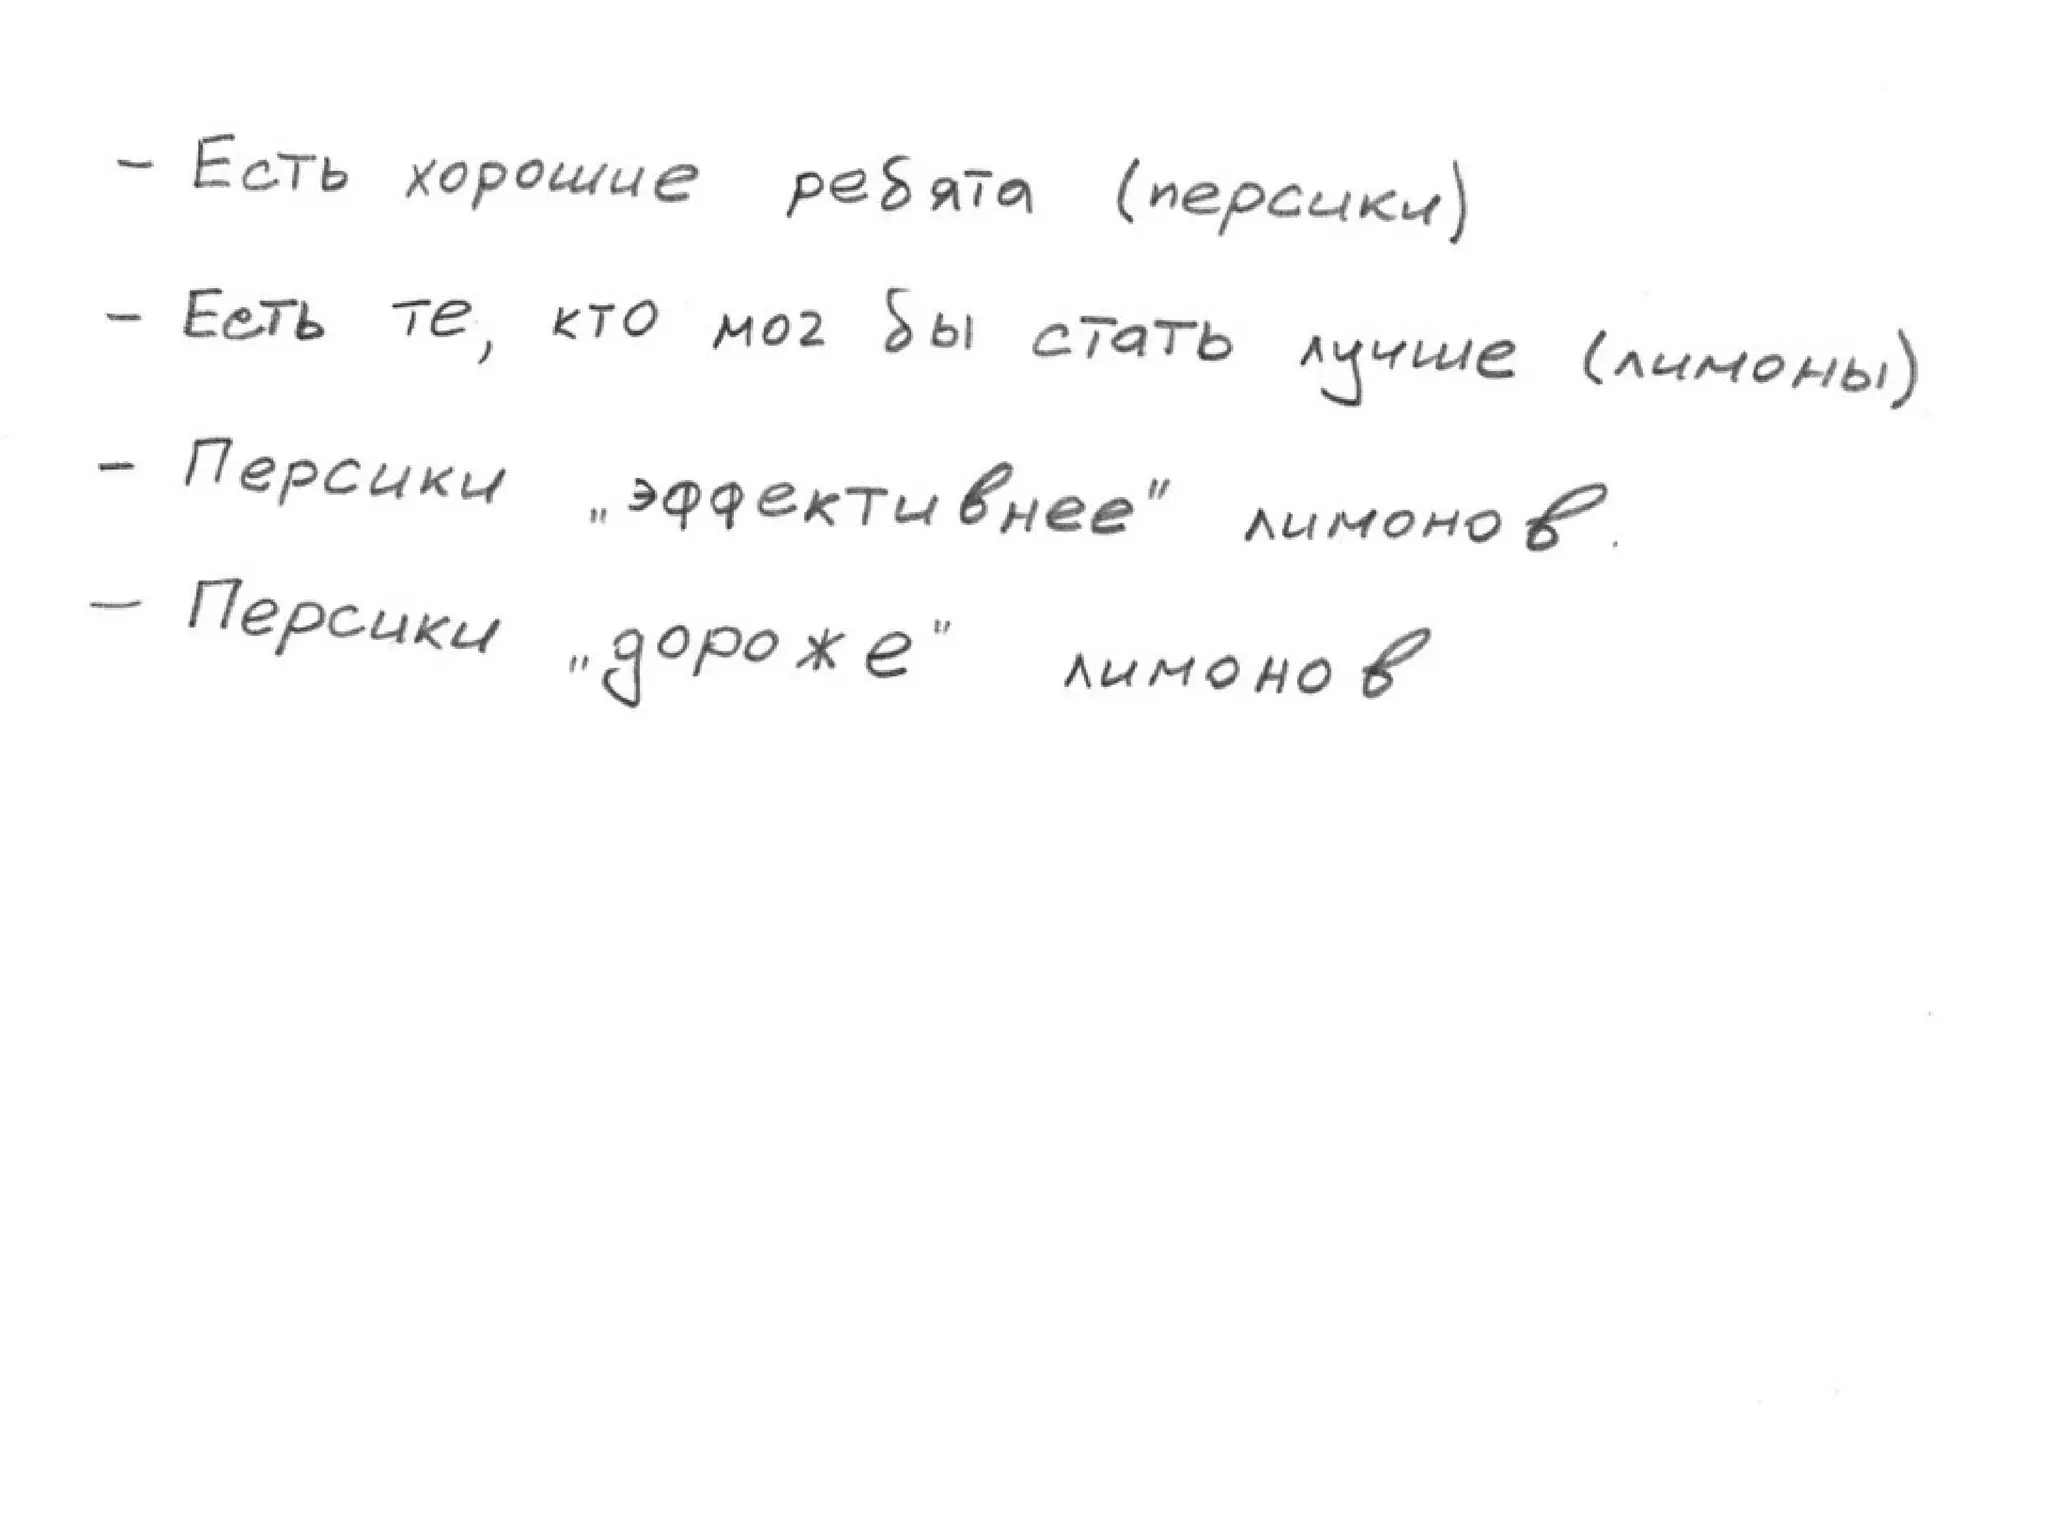 - Есть хорошие ребята (персики)
- Есть те, кто мог бы стать лучше (лимоны)
- Персики „эффективнее" лимонов.
- Персики „дороже" лимонов